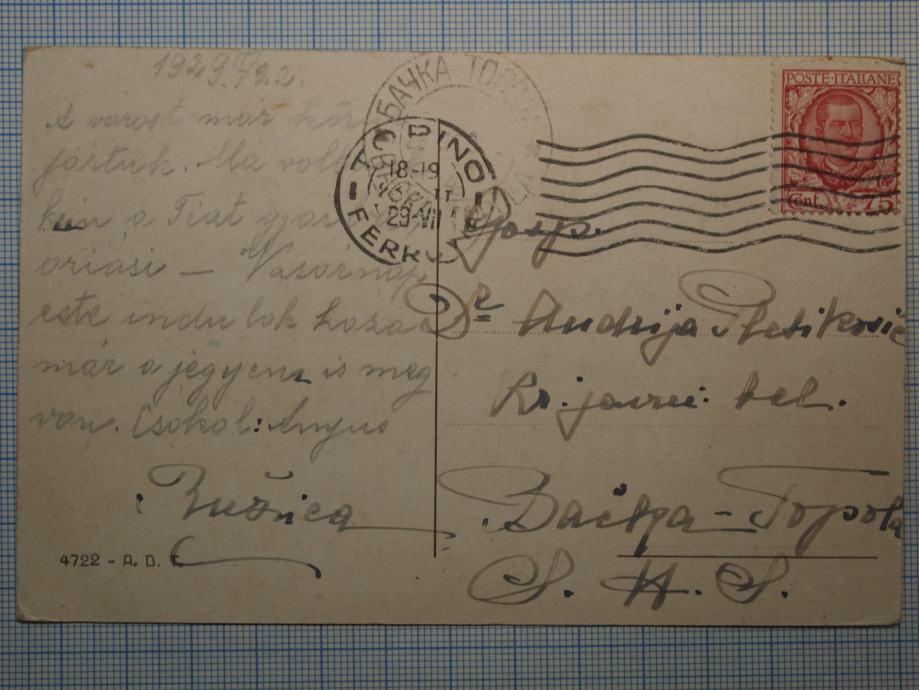 1929
A várost már kör
jártuk. Ma vol
kin a Fiat gyár
óriási — Vasárnap
este indulok haza
már a jegyem is meg
van. Csókol: Anyus
Ružica
4722 - A. D. T.
БАЧКА ТОПОЛА
TORINO
18-19
29-VII
FERROVIA
POSTE·ITALIANE
Cent. 75
Gosp.
Dr Andrija Pletikosić
kr. javni bel.
Bačka-Topola
S. H. S.